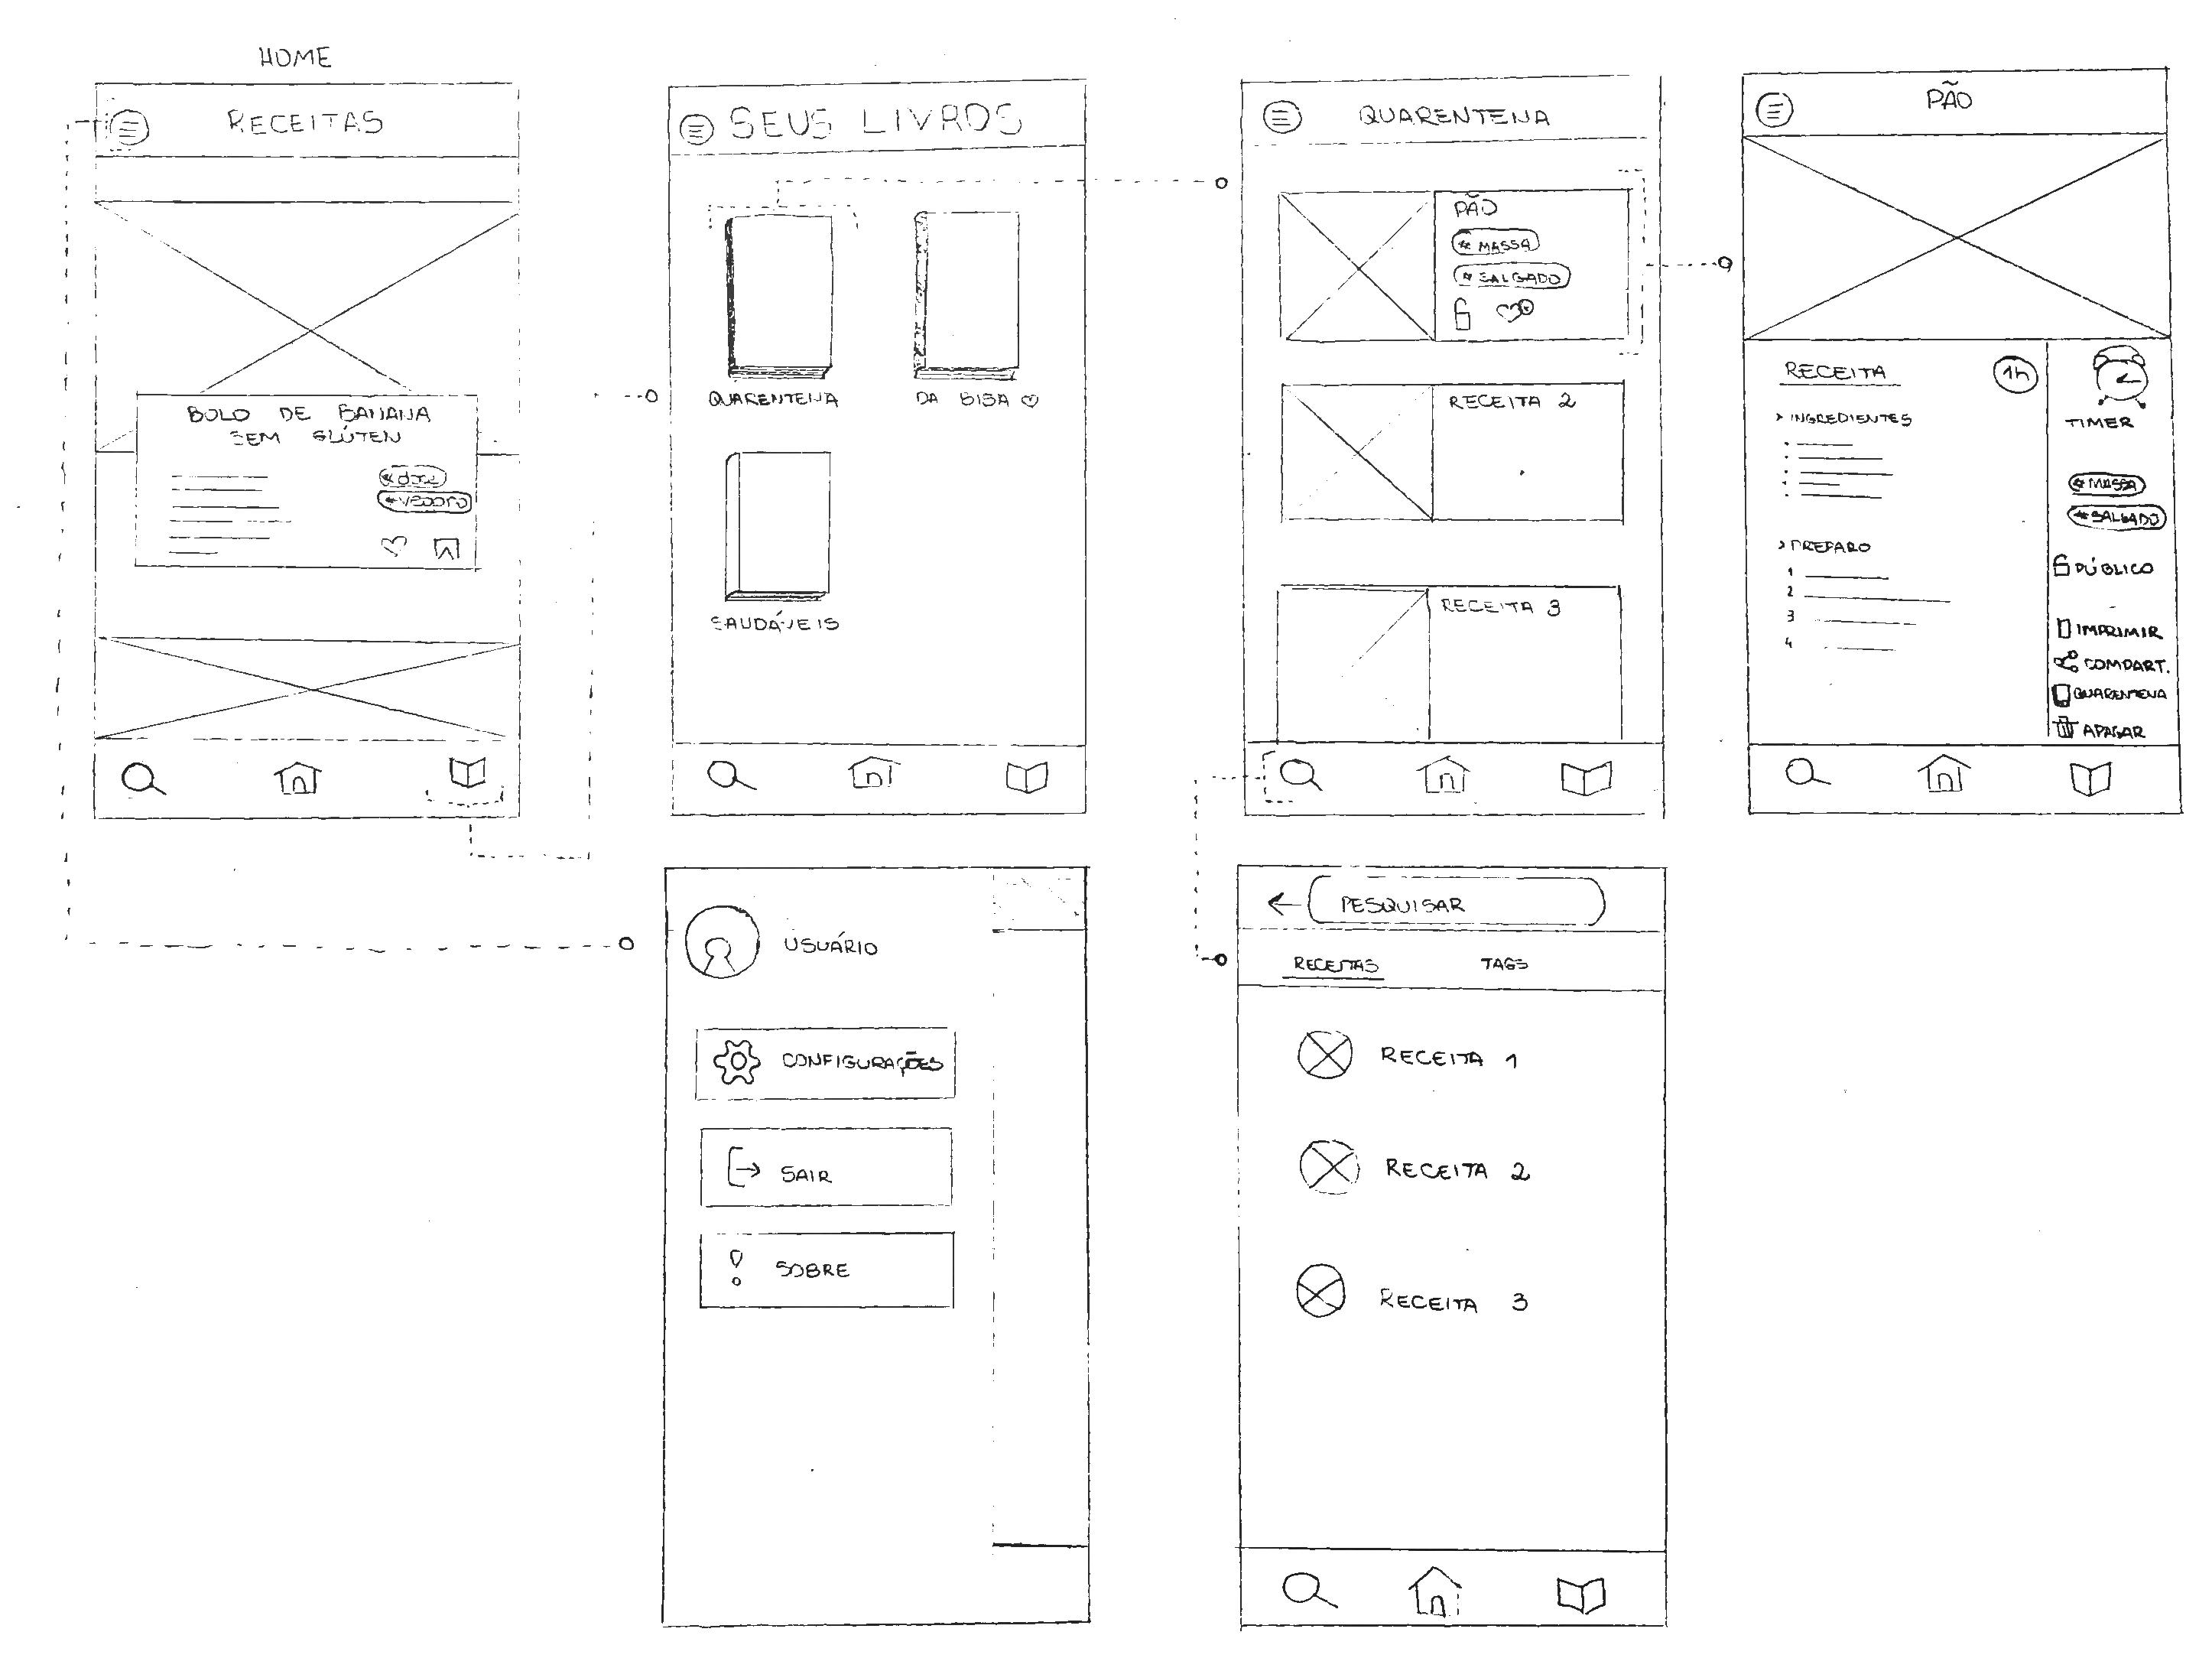 HOME
RECEITAS
BOLO DE BANANA
SEM GLÚTEN
#doce
SEUS LIVROS
QUARENTENA
DA BISA ♡
SAUDÁVEIS
QUARENTENA
PÃO
# MASSA
# SALGADO
RECEITA 2
RECEITA 3
PÃO
RECEITA
1h
> INGREDIENTES
> PREPARO
1
2
3
4
TIMER
# MASSA
# SALGADO
PÚBLICO
IMPRIMIR
COMPART.
QUARENTENA
APAGAR
USUÁRIO
CONFIGURAÇÕES
SAIR
SOBRE
PESQUISAR
RECEITAS TAGS
RECEITA 1
RECEITA 2
RECEITA 3